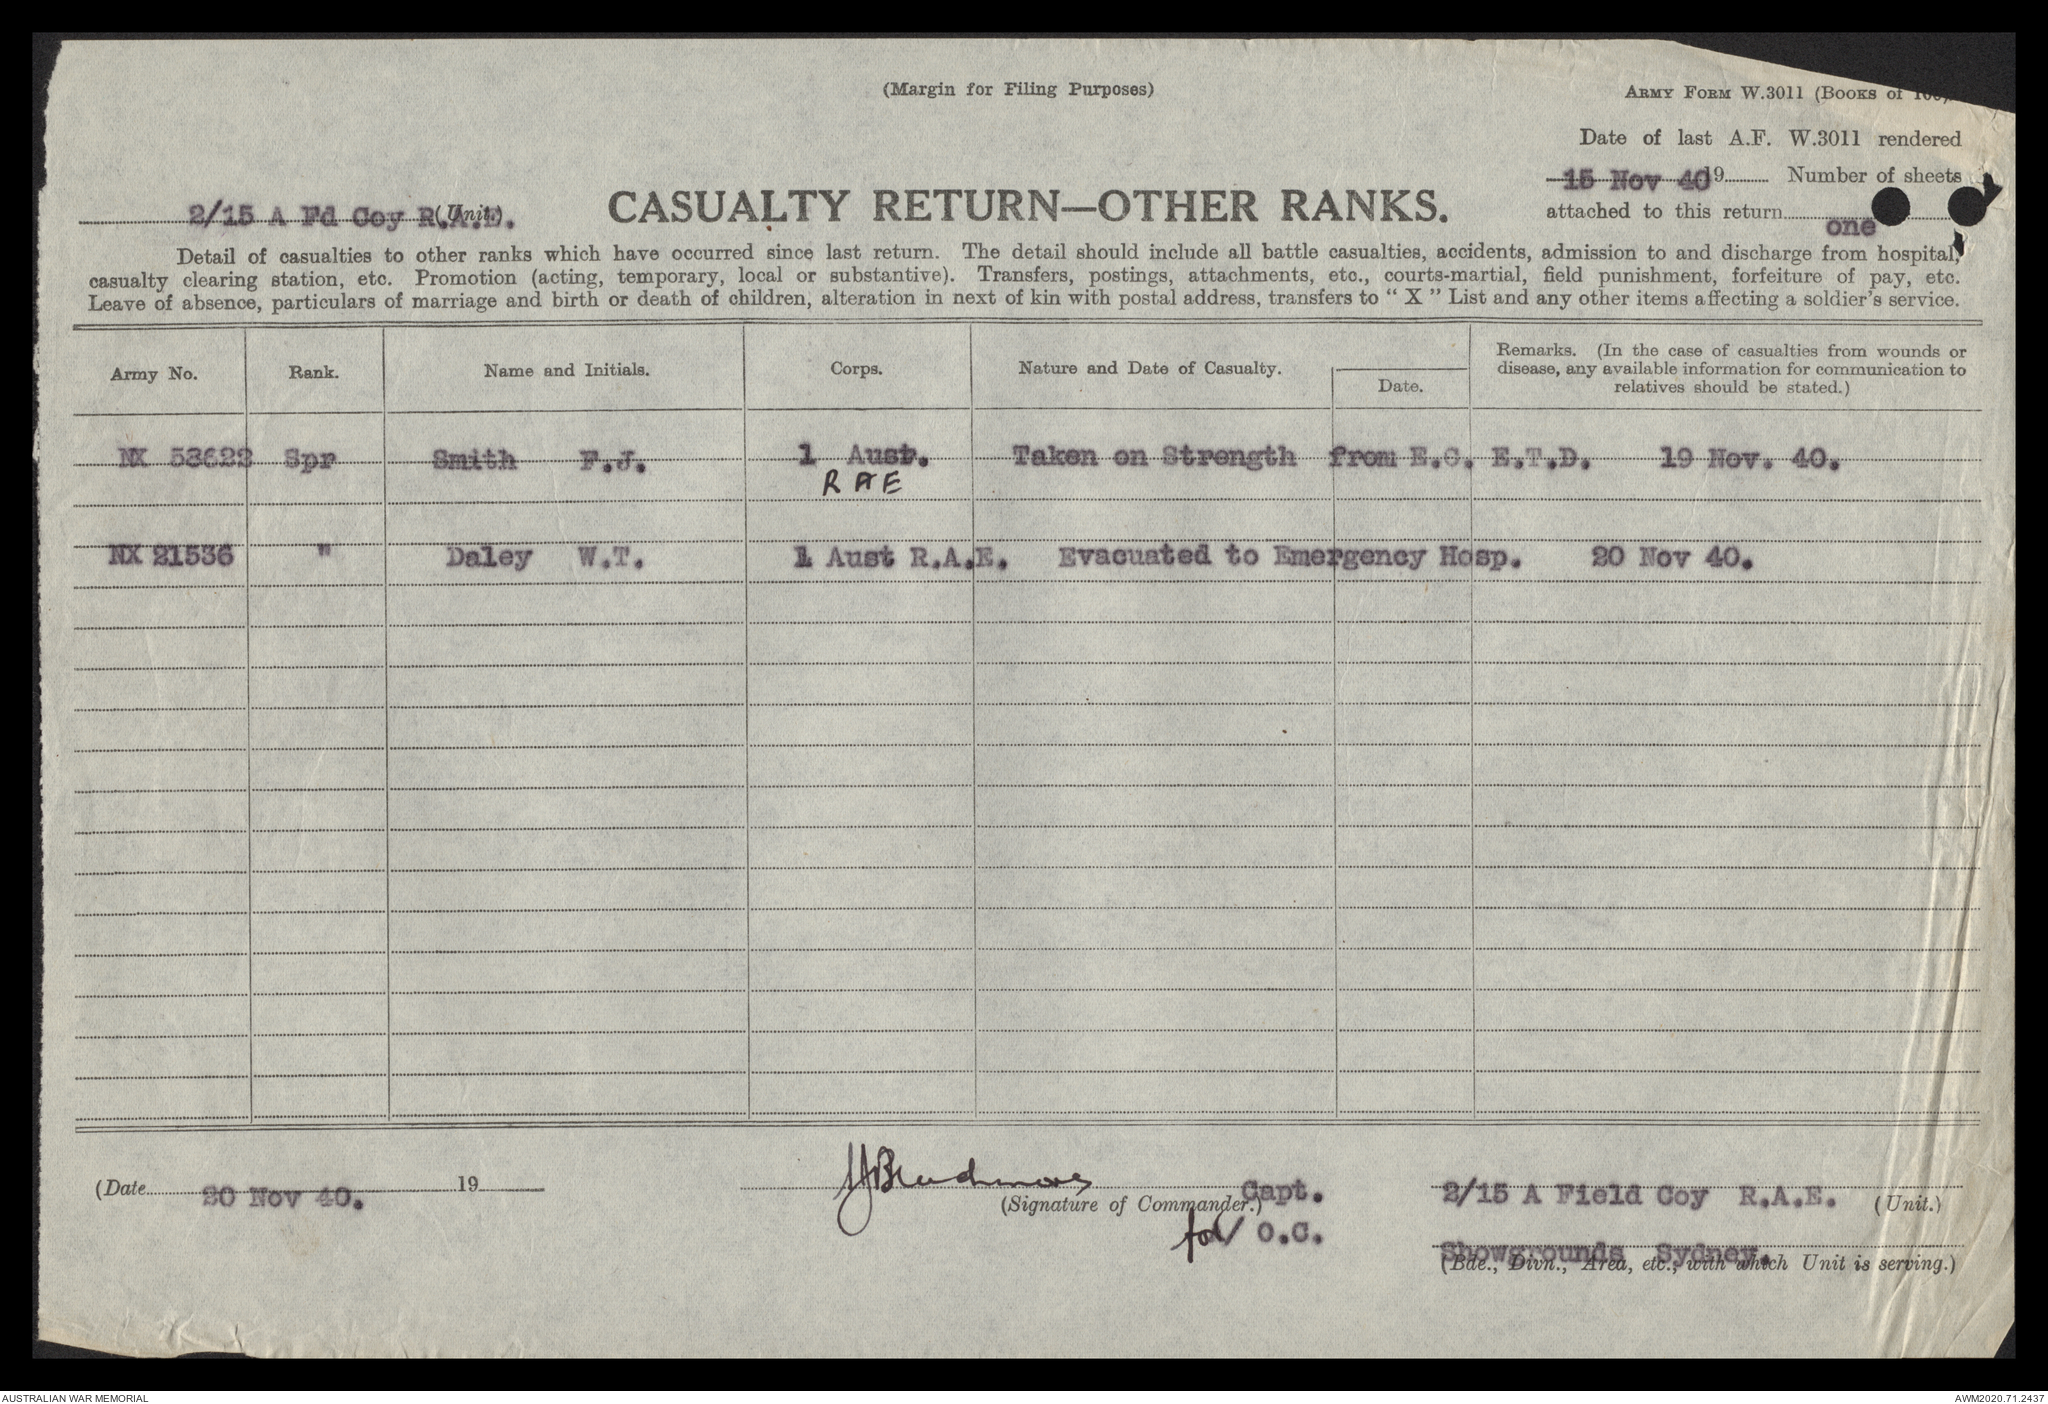 (Margin for Filing Purposes)
ARMY FORM W.3011 (BOOKS of 100).
Date of last A.F. W.3011 rendered
15 Nov 40 19 Number of sheets
attached to this return one
2/15 A Fd Coy R.A.E. (Unit.)
CASUALTY RETURN—OTHER RANKS.
Detail of casualties to other ranks which have occurred since last return. The detail should include all battle casualties, accidents, admission to and discharge from hospital,
casualty clearing station, etc. Promotion (acting, temporary, local or substantive). Transfers, postings, attachments, etc., courts-martial, field punishment, forfeiture of pay, etc.
Leave of absence, particulars of marriage and birth or death of children, alteration in next of kin with postal address, transfers to " X " List and any other items affecting a soldier's service.
Army No. Rank. Name and Initials. Corps. Nature and Date of Casualty. Date. Remarks. (In the case of casualties from wounds or
disease, any available information for communication to
relatives should be stated.)
NX 53622 Spr Smith F.J. 1 Aust. Taken on Strength from E.C. E.T.D. 19 Nov. 40.
RAE
NX 21536 " Daley W.T. 1 Aust R.A.E. Evacuated to Emergency Hosp. 20 Nov 40.
(Date 20 Nov 40. 19
Capt.
(Signature of Commander.)
for O.C.
2/15 A Field Coy R.A.E. (Unit.)
Showgrounds Sydney.
(Bde., Divn., Area, etc., with which Unit is serving.)
AUSTRALIAN WAR MEMORIAL
AWM2020.71.2437